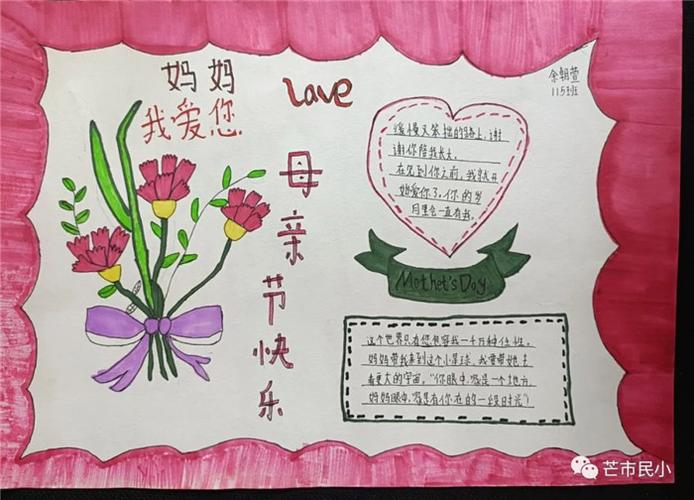 妈妈
我爱您
Lave
余朝萱
115班
母亲节快乐
缓慢又笨拙的路上,谢
谢你陪我长大。
在见到你之前,我就开
始爱你了。你的岁
月里会一直有我。
Mothet's Day
这个世界只有您包容我一千万种任性。
妈妈带我来到这个小星球,我要带她去
看更大的宇宙。"你眼中,家是一个地方
妈妈眼中,家是有你在的一段时光"
芒市民小